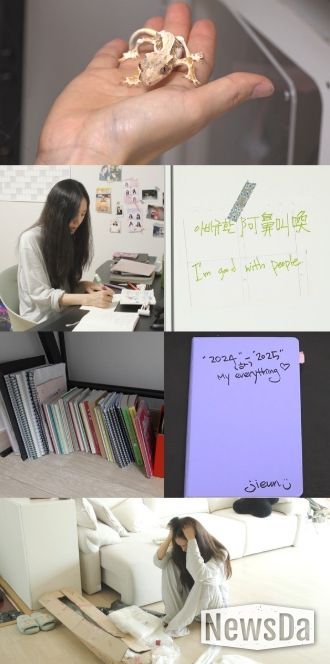 아비규환 阿鼻叫喚
I'm good with people
"2024" - "2025"
My everything♡
jieun
NewsDa